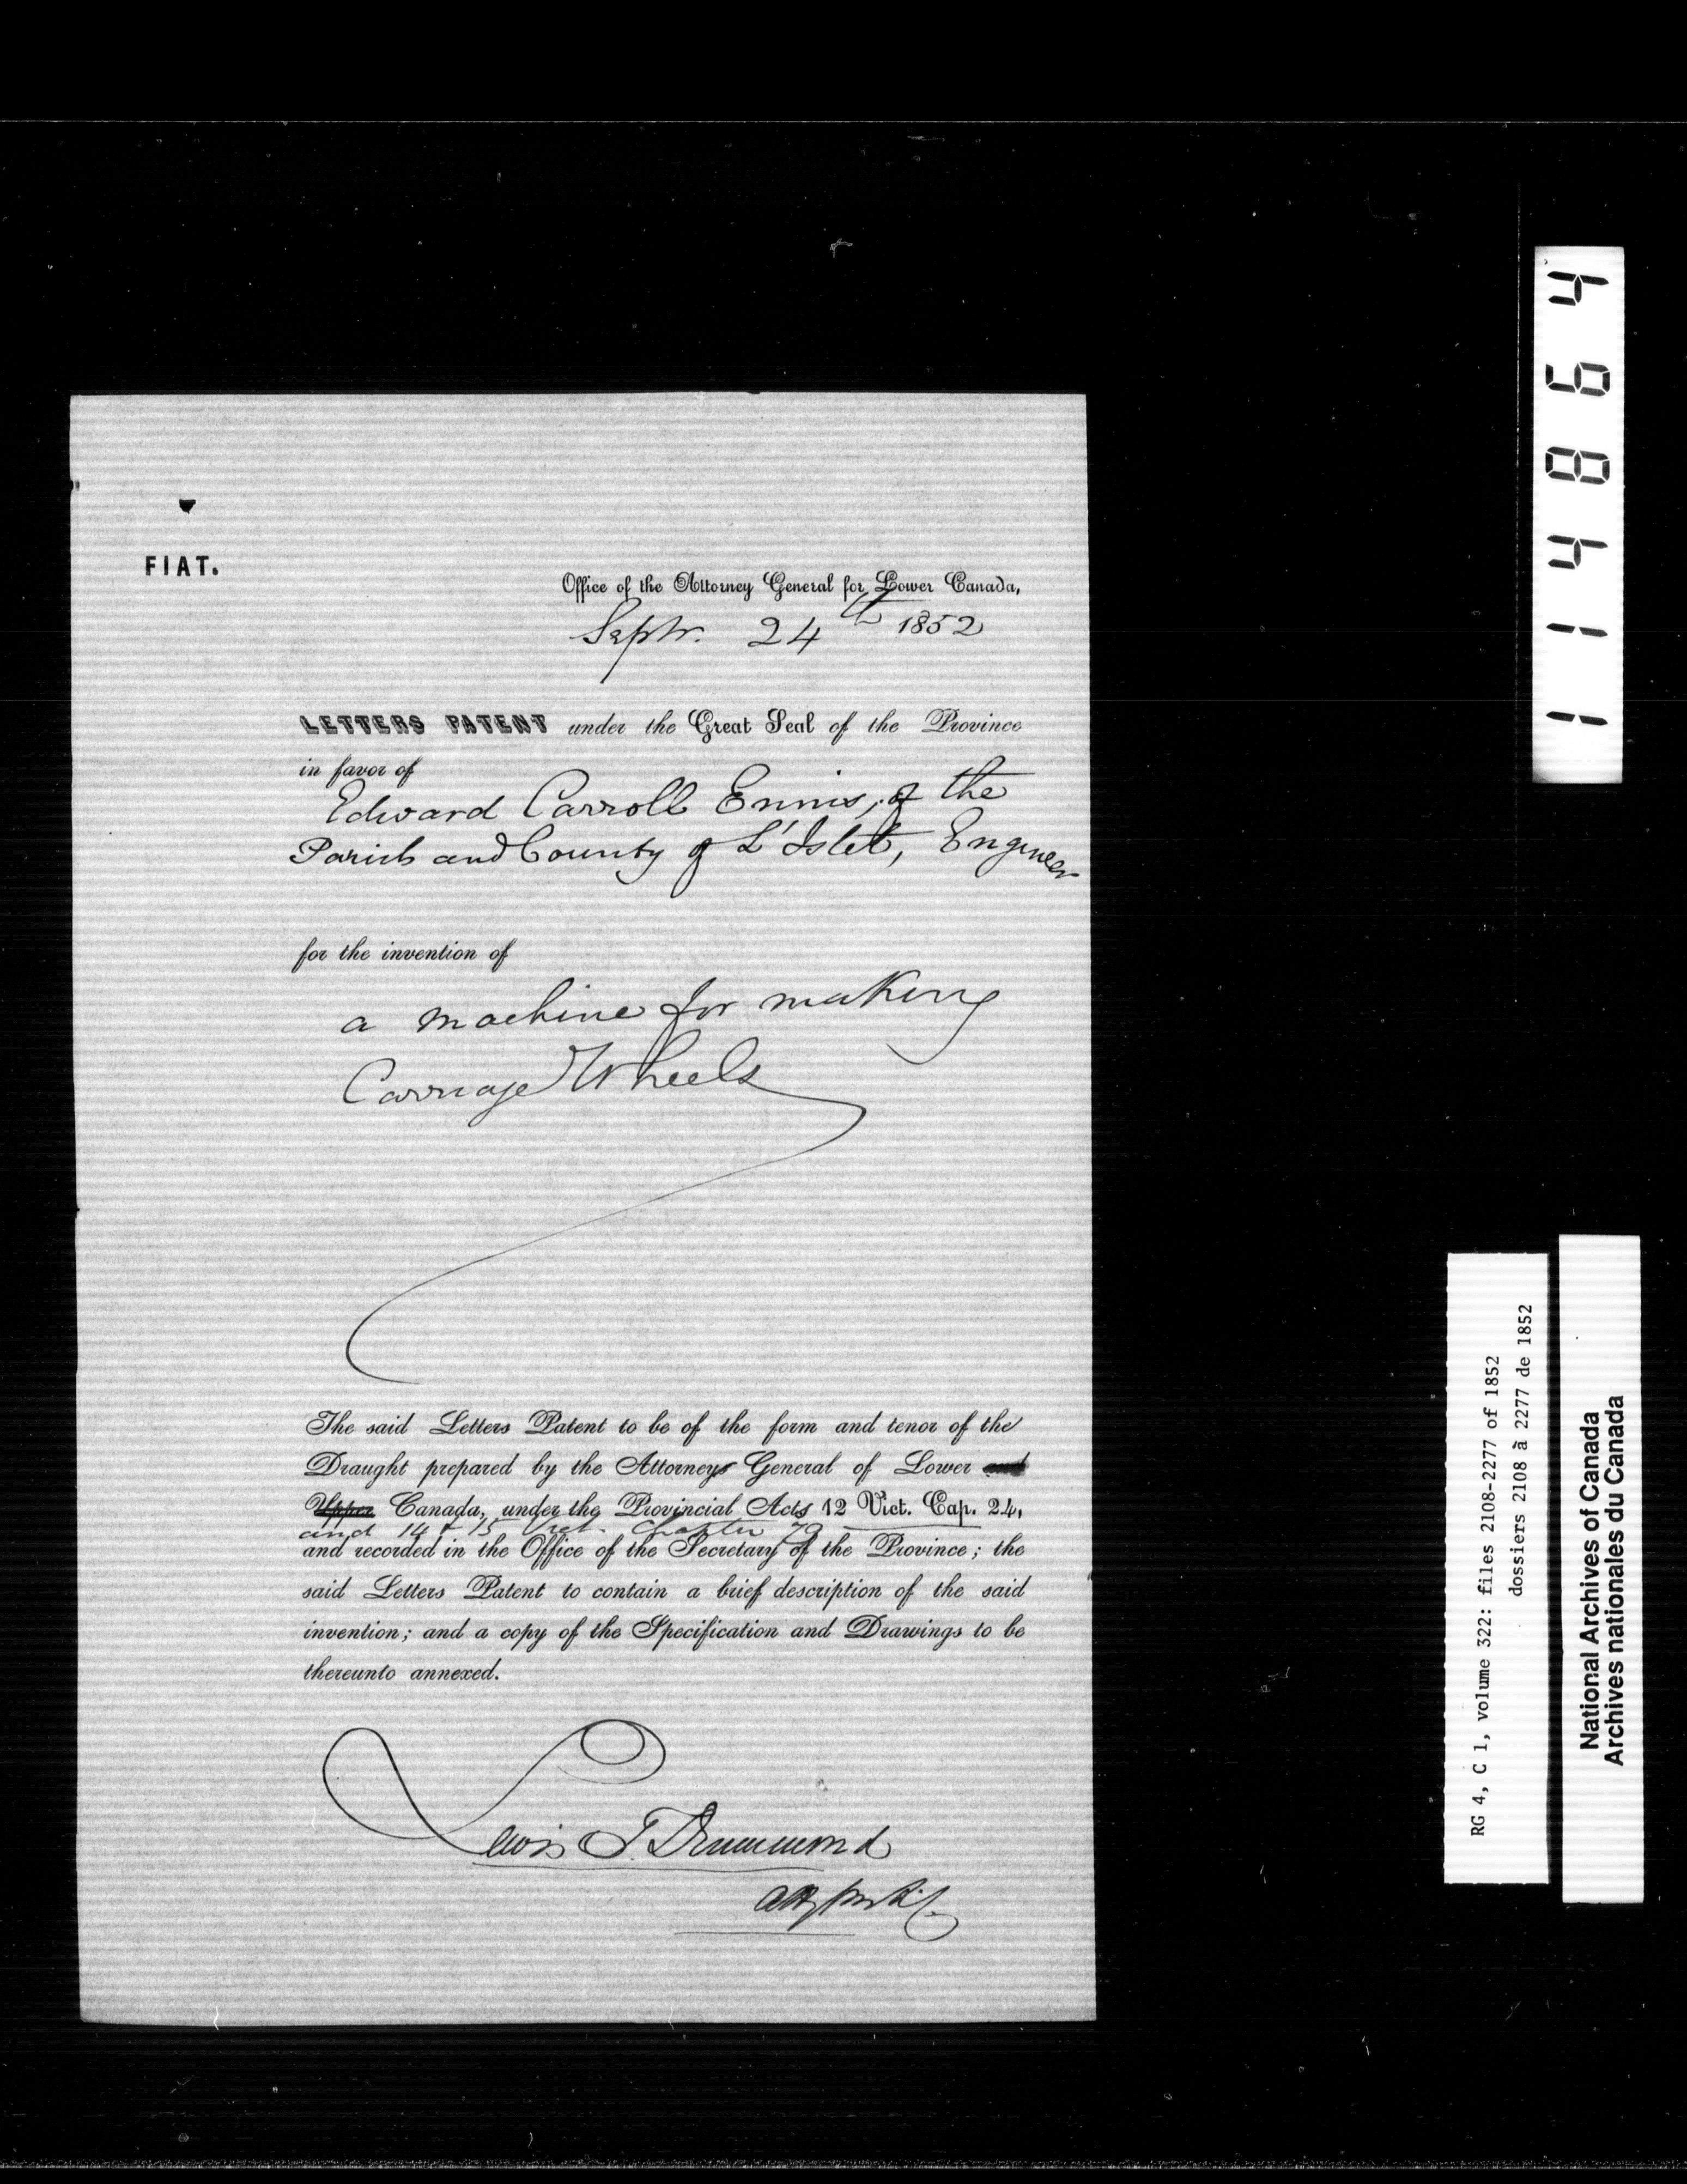 FIAT.
Office of the Attorney General for Lower Canada,
Septr. 24th 1852
LETTERS PATENT under the Great Seal of the Province
in favor of
Edward Carroll Ennis, of the
Parish and County of L'Islet, Engineer
for the invention of
a machine for making
Carriage Wheels
The said Letters Patent to be of the form and tenor of the
Draught prepared by the Attorneys General of Lower and
Upper Canada, under the Provincial Acts 12 Vict. Cap. 24,
and 14 & 15 Vict. Chapter 79
and recorded in the Office of the Secretary of the Province; the
said Letters Patent to contain a brief description of the said
invention; and a copy of the Specification and Drawings to be
thereunto annexed.
Lewis T. Drummond
114864
RG 4, C 1, volume 322: files 2108-2277 of 1852
dossiers 2108 à 2277 de 1852
National Archives of Canada
Archives nationales du Canada